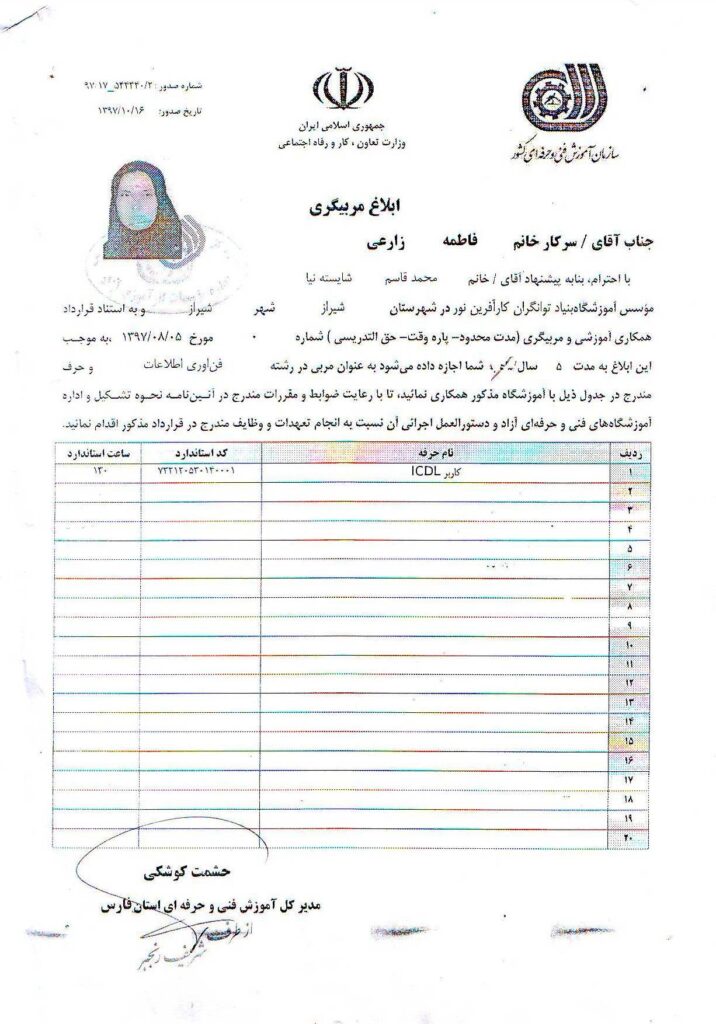 شماره صدور: ۹۷:۱۷_۵۴۴۳۴۰/۲
تاریخ صدور: ۱۳۹۷/۱۰/۱۶
جمهوری اسلامی ایران
وزارت تعاون، کار و رفاه اجتماعی
سازمان آموزش فنی و حرفه ای کشور
ابلاغ مربیگری
جناب آقای / سرکار خانم فاطمه زارعی
با احترام، بنابه پیشنهاد آقای / خانم محمد قاسم شایسته نیا
مؤسس آموزشگاه بنیاد توانگران کارآفرین نور در شهرستان شیراز شهر شیراز و به استناد قرارداد
همکاری آموزشی و مربیگری (مدت محدود- پاره وقت- حق التدریسی) شماره ۰ مورخ ۱۳۹۷/۰۸/۰۵ ،به موجب
این ابلاغ به مدت ۵ سال ، شما اجازه داده می‌شود به عنوان مربی در رشته فن‌اوری اطلاعات و حرف
مندرج در جدول ذیل با آموزشگاه مذکور همکاری نمائید، تا با رعایت ضوابط و مقررات مندرج در آئین‌نامه نحوه تشکیل و اداره
آموزشگاه‌های فنی و حرفه‌ای آزاد و دستورالعمل اجرائی آن نسبت به انجام تعهدات و وظایف مندرج در قرارداد مذکور اقدام نمائید.
ردیف نام حرفه کد استاندارد ساعت استاندارد
۱ کاربر ICDL ۷۳۲۱۲۰۵۳۰۱۴۰۰۰۱ ۱۳۰
۲
۳
۴
۵
۶
۷
۸
۹
۱۰
۱۱
۱۲
۱۳
۱۴
۱۵
۱۶
۱۷
۱۸
۱۹
۲۰
حشمت کوشکی
مدیر کل آموزش فنی و حرفه ای استان فارس
از طرف
شریف رنجبر